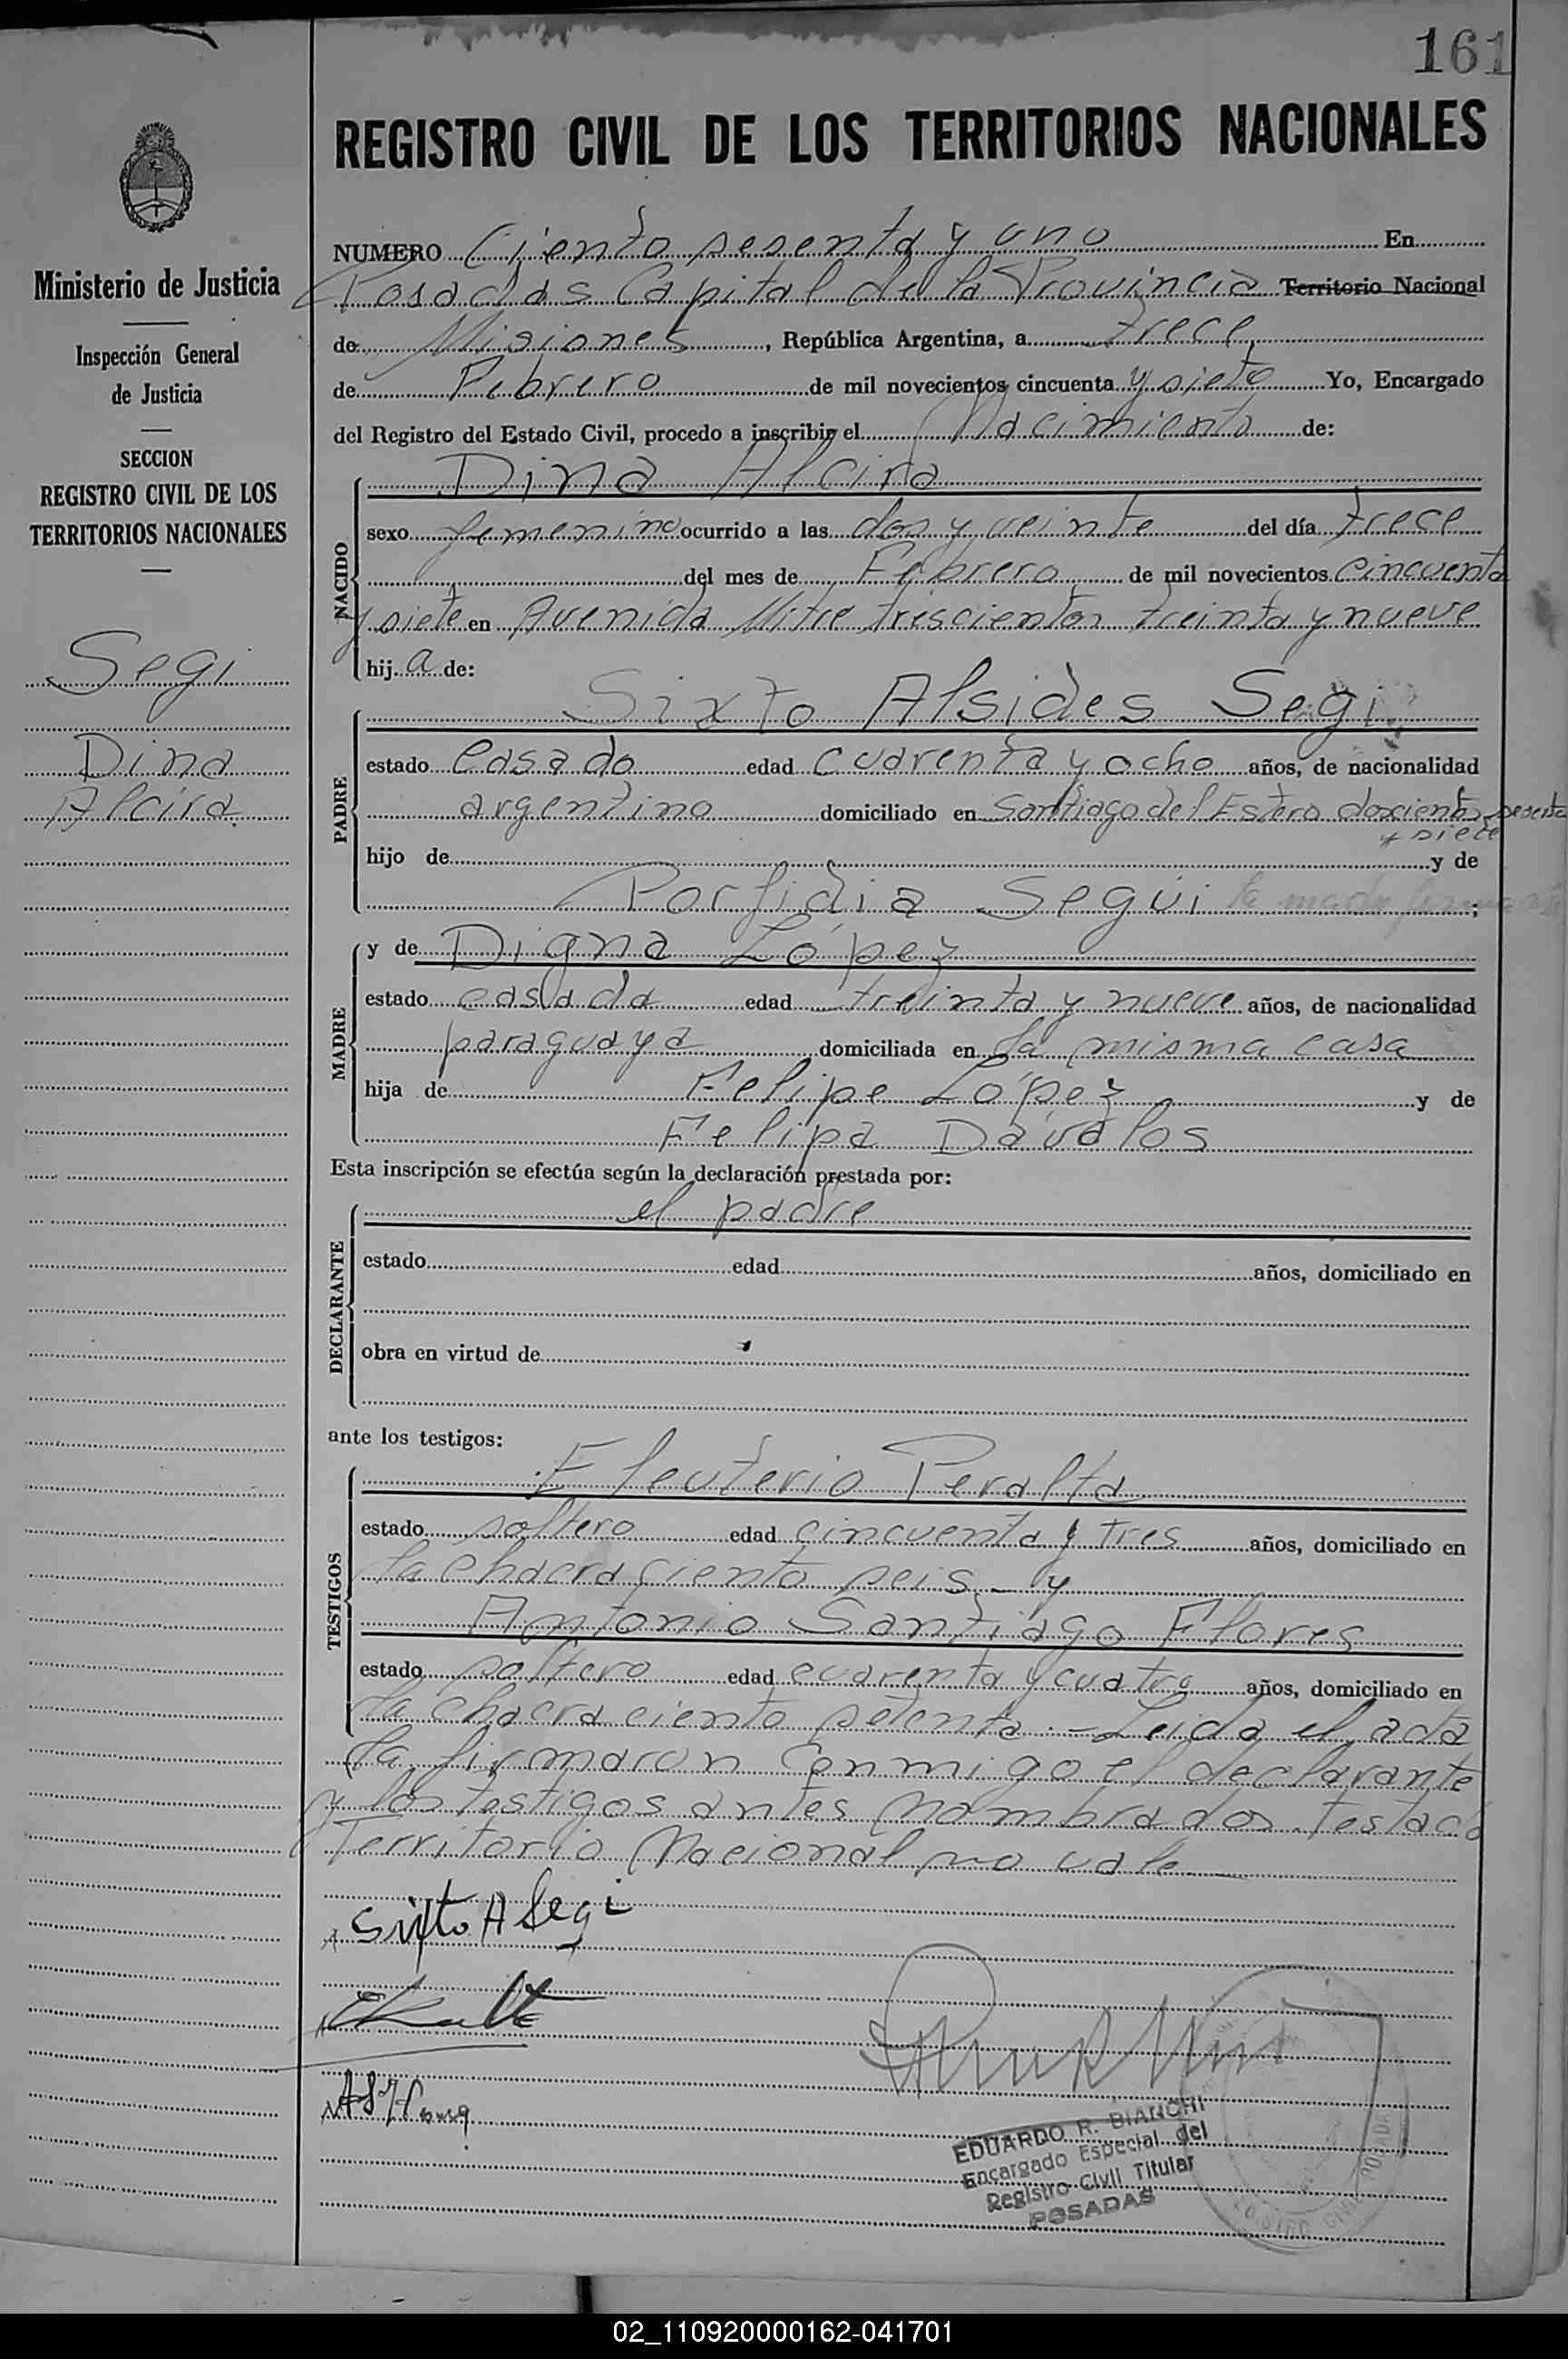 161
REGISTRO CIVIL DE LOS TERRITORIOS NACIONALES
Ministerio de Justicia
Inspección General
de Justicia
SECCION
REGISTRO CIVIL DE LOS
TERRITORIOS NACIONALES
Segi
Dina
Alcira
NUMERO Ciento sesenta y uno En
Posadas Capital de la Provincia Territorio Nacional
de Misiones, República Argentina, a trece
de Febrero de mil novecientos cincuenta y siete Yo, Encargado
del Registro del Estado Civil, procedo a inscribir el Nacimiento de:
NACIDO
Dina Alcira
sexo femenino ocurrido a las dos y veinte del día trece
del mes de Febrero de mil novecientos cincuenta
y siete en Avenida Mitre trescientos treinta y nueve
hij a de:
PADRE
Sixto Alsides Segi
estado casado edad cuarenta y ocho años, de nacionalidad
argentino domiciliado en Santiago del Estero doscientos sesenta
y siete
hijo de y de
Porfidia Segui
;
MADRE
y de Digna López
estado casada edad treinta y nueve años, de nacionalidad
paraguaya domiciliada en la misma casa
hija de Felipe López y de
Felipa Dávalos
Esta inscripción se efectúa según la declaración prestada por:
DECLARANTE
el padre
estado edad años, domiciliado en
obra en virtud de
ante los testigos:
TESTIGOS
Eleuterio Peralta
estado soltero edad cincuenta y tres años, domiciliado en
la chacra ciento seis.- y
Antonio Santiago Flores
estado soltero edad cuarenta y cuatro años, domiciliado en
la chacra ciento setenta.- Leida el acta
la firmaron conmigo el declarante
y los testigos antes nombrados. Testado
Territorio Nacional no vale
Sixto A Segi
EDUARDO R. BIANCHI
Encargado Especial del
Registro Civil Titular
POSADAS
02_110920000162-041701